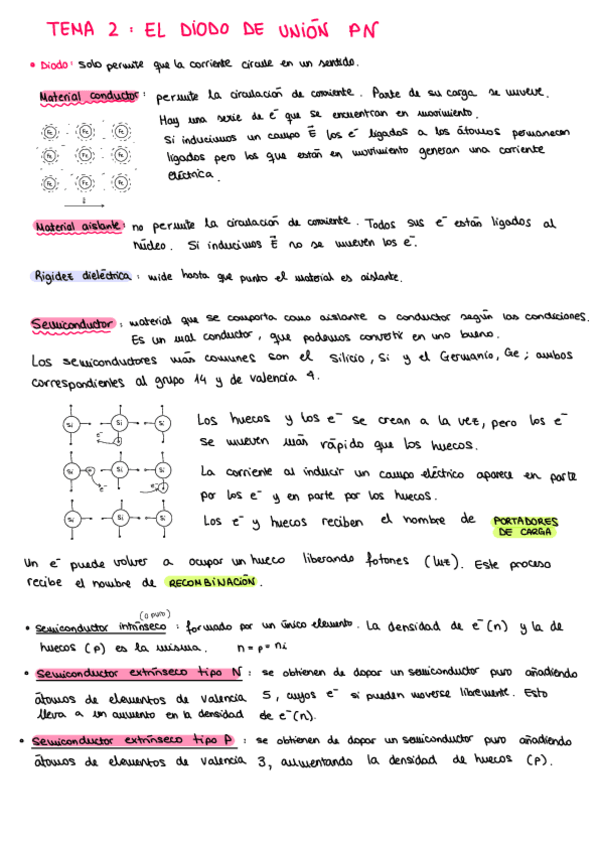 TEMA 2 : EL DIODO DE UNIÓN PN
• Diodo: solo permite que la corriente circule en un sentido.
Material conductor: permite la circulación de corriente. Parte de su carga se mueve.
Hay una serie de e⁻ que se encuentran en movimiento.
Si inducimos un campo E⃗ los e⁻ ligados a los átomos permanecen
ligados pero los que están en movimiento generan una corriente
eléctrica.
Fe Fe Fe
Fe Fe Fe
Fe Fe Fe
Material aislante: no permite la circulación de corriente. Todos sus e⁻ están ligados al
núcleo. Si inducimos E⃗ no se mueven los e⁻.
Rigidez dieléctrica: mide hasta que punto el material es aislante.
Semiconductor: material que se comporta como aislante o conductor según las condiciones.
Es un mal conductor, que podemos convertir en uno bueno.
Los semiconductores más comunes son el Silicio, Si y el Germanio, Ge; ambos
correspondientes al grupo 14 y de valencia 4.
Si Si Si
e⁻
Si Si Si
e⁻ e⁻
Si Si Si
Los huecos y los e⁻ se crean a la vez, pero los e⁻
se mueven más rápido que los huecos.
La corriente al inducir un campo eléctrico aparece en parte
por los e⁻ y en parte por los huecos.
Los e⁻ y huecos reciben el nombre de PORTADORES
DE CARGA
Un e⁻ puede volver a ocupar un hueco liberando fotones (luz). Este proceso
recibe el nombre de RECOMBINACIÓN.
(o puro)
• Semiconductor intrínseco: formado por un único elemento. La densidad de e⁻(n) y la de
huecos (p) es la misma. n = p = ni
• Semiconductor extrínseco tipo N: se obtienen de dopar un semiconductor puro añadiendo
átomos de elementos de valencia 5, cuyos e⁻ si pueden moverse libremente. Esto
lleva a un aumento en la densidad de e⁻(n).
• Semiconductor extrínseco tipo P: se obtienen de dopar un semiconductor puro añadiendo
átomos de elementos de valencia 3, aumentando la densidad de huecos (p).